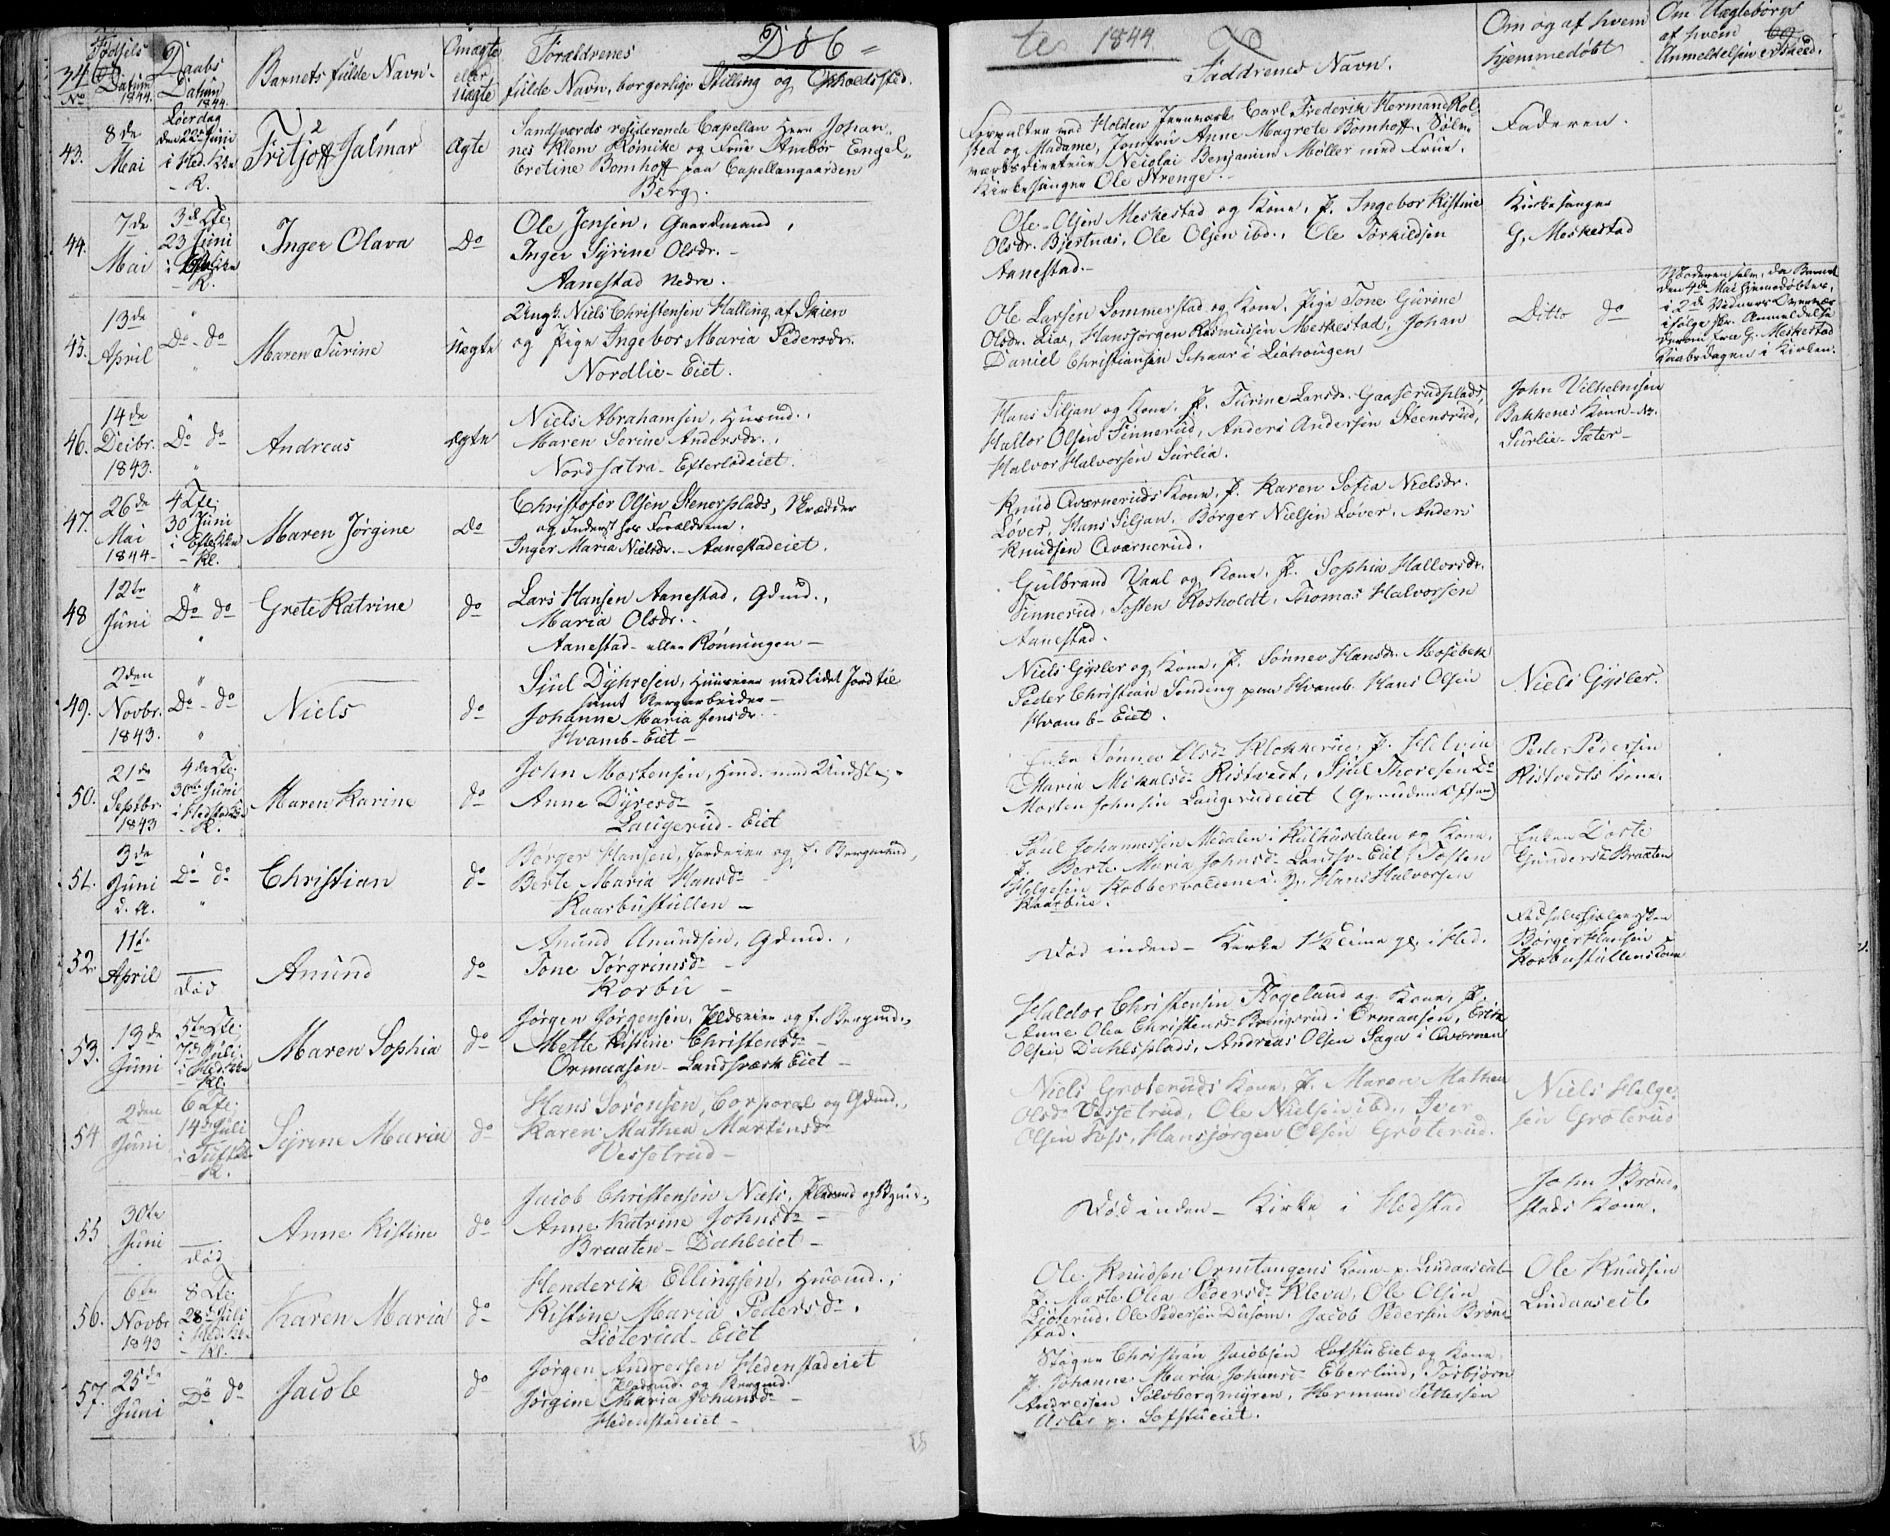 34
Fødsels Datum 1844.
Daabs Datum 1844.
Barnets fulde Navn.
Om ægte eller Uægte
Forældrenes
fulde Navn, borgerlige Stilling og Opholdssted.
Døb=
te 1844.
Faddrenes Navn.
Om og af hvem
hjemmedøbt
Om Uægtebørn
af hvem
Anmeldelsen er skeed.
No
43.
8de
Mai
Løverdag
den 22de Juni
i Hed. Kke
- K.
Fritjoff Jalmar
Ægte
Sandsværds residerende Capellan Herr Johan-
nes Klem Reinike og Frue Ambor Engel-
bretine Bomhoff paa Capellangaarden
Berg.
Forvalter ved Holden Jernværk Carl Frederik Hermand Kol-
sted og Madame, Jomfru Anne Magrete Bomhoff, Sølv-
værksdirecteur Nicolai Benjamin Møller med Frue,
Kirkesanger Ole Strenge.
Faderen.
44.
7de
Mai
3de
23 Juni
K.
Inger Olava
Do
Ole Jensen, Gaardmand,
Inger Syrine Olsdr.
Aanestad Nedre.
Ole Olsen Meskestad og Kone, P. Ingebor Kistine
Olsdr. Bjertnæs, Ole Olsen ibd., Ole Torkildsen
Aanestad.
Kirkesanger
G. Meskestad
45.
13de
April
Do - do
Maren Turine
Uægte
Ungk. Niels Christensen Halling af Skien
og Pige Ingebor Maria Pedersdr.
Nordlie-Eiet.
Ole Larsen Sommerstad og Kone, Pige Tone Gurine
Olsdr. Lia, Hans Jørgen Rasmusen Meskestad, Johan
Daniel Christiansen Schaar i Liahougen
Ditto do
Moderen selv, da Barnet
den 4de Mai hjemmedøbtes,
i 2de Vidners Overvær
ifølge skr. Anmeldelse
derom fra G. Meskestad
Daabsdagen i Kirken.
46.
14de
Decbr.
1843.
Do do
Andreas
ægte
Niels Abrahamsen, Huusmd.,
Maren Serine Andersdr.,
Nordsætra-Efterlødeiet.
Hans Siljan og Kone, P. Turine Larsdr. Gaaserudplads,
Hallor Olsen Tinnerud, Anders Andersen Steensrud,
Halvor Halvorsen Surlia.
John Vilhelmsen
Bakkenes Kone -
Surlie-Sæter-
47.
26de
Mai
1844-
4
30 Juni
- Kl.
Maren Jørgine
Do
Christofer Olsen Stenersplads, Skrædder
og Inderst hos Forældrene,
Inger Maria Nielsdr. - Aanestadeiet.
Knud Qværneruds Kone, P. Karen Sofia Nielsdr.
Løver, Hans Siljan, Børger Nielsen Løver, Anders
Knudsen Qværnerud.
48
12te
Juni
Do do
Grete Katrine
do
Lars Hansen Aanestad, Gdmd.,
Maria Olsdr.
Aanestad - eller Rønningen -
Gulbrand Vaal og Kone, P. Sophia Hallorsdr.
Tinnerud, Tosten Rosholdt, Thomas Halvorsen
Aanestad.
49.
2den
Novbr.
1843.
Do - do
Niels
do
Sjul Dyhresen, Huuseier med lidet Jord til
samt Bergarbeider -
Johanne Maria Jensdr.
Hvamb-Eiet -
Niels Gysler og Kone, P. Sønnev Hansdr. Mosebek
Peder Christian Sending paa Hvamb, Hans Olsen
Hvamb-Eiet.
Niels Gysler.
50.
21de
Septbr.
1843
4de
30te Juni
Maren Karine
do
John Mortensen, Hmd.
Anne Dyresdr -
Laugerud-Eiet
Enke Sønnev Olsdr Klokkerud, P. Helvia
Maria Mikalsdr Ristvedt, Sjul Thoresen Do
Morten Johnsen Laugerudeiet
Peder Pedersen
Ristvedts Kone.
51.
3de
Juni
d. A.
Do do
Christian
do
Børger Hansen, Jordeier og f. Bergmand,
Berte Maria Hansdr
Kaarbustullen -
Poul Johannesen Medalen i Kulhusdalen og Kone,
P. Berte Maria Johnsdr Landsv. Eiet, Tosten
Helgesen Kobbervoldene i Hans Halvorsen
Kaarbue.
Enken Dorte
Gundersdr Braaten
52.
11te
April
Død
Amund
do
Amund Amundsen, Gdmd.,
Tone Torgrimsdr -
Korbu -
Død inden - Kirke i Hed.
Børger Hansen
Korbustullens Kone
53.
13de
Juni
5te
7de Juli
i Hed. Kke
Kl.
Maren Sophia
do
Jørgen Jørgensen, Pladseier og f. Bergmd.,
Mette Kistine Christensdr -
Ormaasen - Landsværk Eiet -
Haldor Christensen Skogeland og Kone, P.
Anne Olea Christensdr Brangerud i Ormaasen, Erik
Olsen Dahlsplads, Andreas Olsen Saga i Qværnen
54
2den
Juni
6
14de Juli
K.
Syrine Maria
do
Hans Sørensen, Corporal og Gdmd.,
Karen Mathea Martinsdr
Vesselrud -
Niels Groteruds Kone, P. Maren Mathea
Olsdr Vesselrud, Ole Nielsen ibd., Iver
Olsen Foss, Hans Jørgen Olsen Grøterud.
Niels Helge-
sen Grøterud
55
30te
Juni
Død
Anne Kistine
do
Jacob Christensen Næss,
Anne Katrine Johnsdr -
Braaten - Dahleiet -
Død inden - Kirke i Hedstad
John Brønd-
stads Kone.
56.
6te
Novbr
1843
8
28de Juli
- Kl.
Karen Maria
do
Henderik Ellingsen, Huusmd.,
Kistine Maria Pedersdr,
Liøterud-Eiet
Ole Knudsen Ormtangens Kone p. Lindaaseiet
P. Marte Olea Pedersdr Kleva, Ole Olsen
Liøterud, Ole Pedersen Dusom, Jacob Pedersen Brønd-
stad.
Ole Knudsen
Lindaaseiet
57.
25de
Juni
Do do
Jacob
do
Jørgen Andresen Hedenstadeiet
Pladsmd. og Bergmd.
Jørgine Maria Johansdr -
Hedenstadeiet -
Steger Christian Jacobsen Lofstueiet og Kone,
P. Johanne Maria Johansdr Eberlind, Torbjørn
Andresen Sølvbergmyren, Herman Pettersen
Aslef p. Lofstueiet.